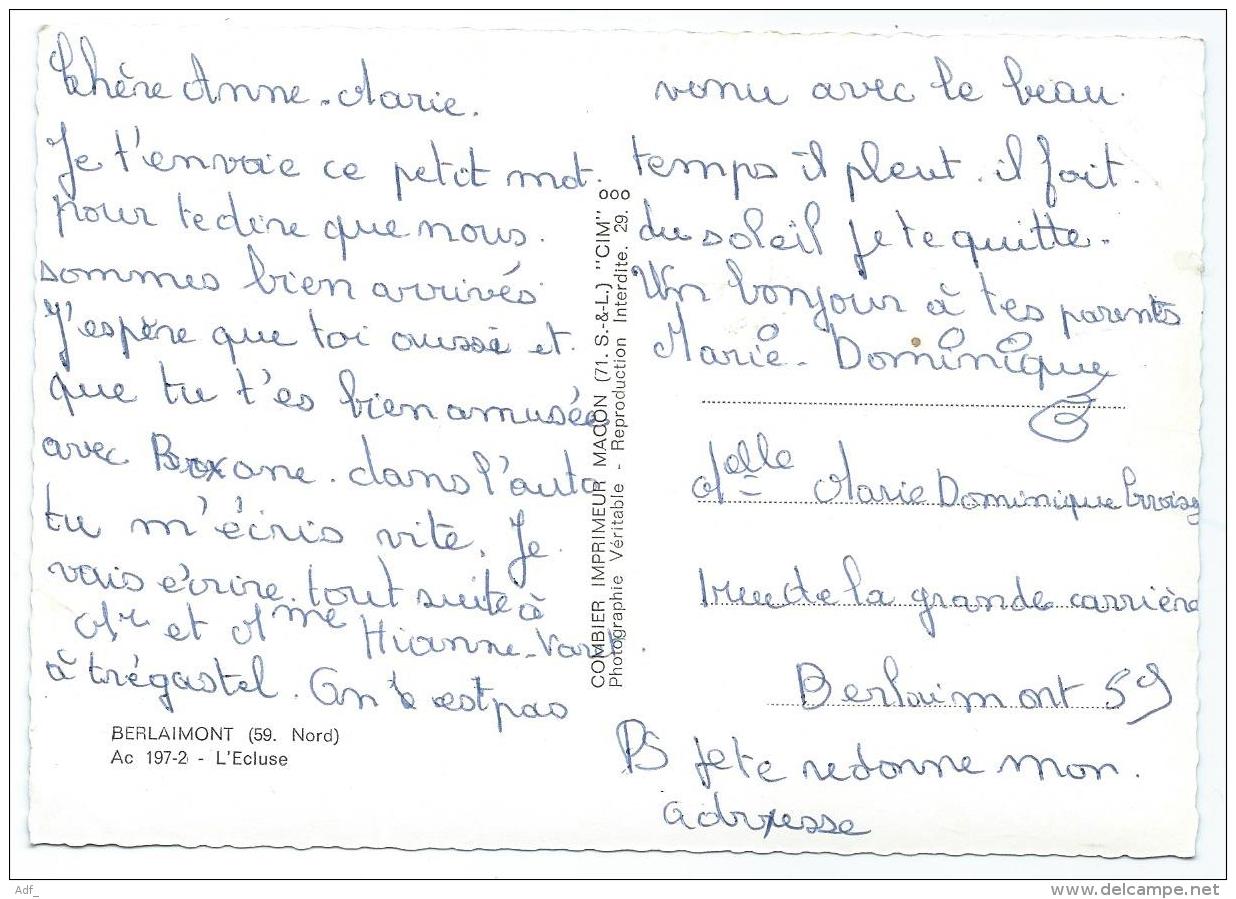 Chère Anne-Marie.
Je t'envoie ce petit mot.
pour te dire que nous.
sommes bien arrivés
J'espère que toi oussi et.
que tu t'es bien amusée
avec Roxane. dans l'auto
tu m'écris vite. Je
vais écrire tout suite à
Mr et Mme Hianne-Varet.
à trégastel. On est pas
venu avec le beau.
temps il pleut. il fait.
du soleil je te quitte.
Un bonjour à tes parents
Marie-Dominique
Melle Marie Dominique
1 rue de la grande carrière
Berlaimont 59
PS je te redonne mon.
adresse
BERLAIMONT (59. Nord)
Ac 197-2 - L'Ecluse
COMBIER IMPRIMEUR MACON (71. S.-&-L.) "CIM"
Photographie Véritable - Reproduction Interdite. 29.
Adf_
www.delcampe.net